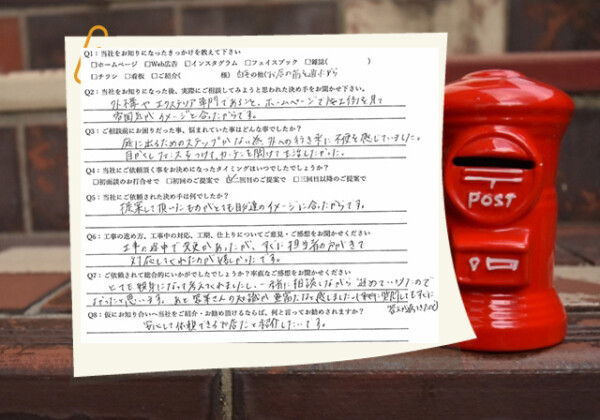 Q1：当社をお知りになったきっかけを教えて下さい
□ホームページ □Web広告 □インスタグラム □フェイスブック □雑誌( )
□チラシ □看板 □ご紹介( 様) ☑その他(お店の前を通るから
Q2：当社をお知りになった後、実際にご相談してみようと思われた決め手をお聞かせ下さい。
外構やエクステリア専門であること、ホームページで施工例を見て
雰囲気がイメージと合ったからです。
Q3：ご相談前にお困りだった事、悩まれていた事はどんな事でしたか？
庭に出るためのステップがない為、外への行き来に不便を感じていました。
目かくしフェンスをつけて、カーテンを開けて生活したかった。
Q4：当社にご依頼頂く事をお決めになったタイミングはいつでしたでしょうか？
□初面談のお打合せで □初回のご提案で ☑二回目のご提案で □三回目以降のご提案で
Q5：当社にご依頼された決め手は何でしたか？
提案して頂いたものがとても自分達のイメージに合ったからです。
Q6：工事の進め方、工事中の対応、工期、仕上りについてご意見・ご感想をお聞かせください
工事の途中で変更があったが、すぐに担当者の方がきて
対応してくれたのが良かったです。
Q7：ご依頼されて総合的にいかがでしたでしょうか？率直なご感想をお聞かせください
とても親身になって考えてくれましたし、一緒に相談しながら進めていけたので
よかったと思います。あと営業さんの知識が豊富だなと感じました。
質問してもすぐに
答えが返ってきたので
Q8：仮にお知り合いへ当社をご紹介・お勧め頂けるならば、何と言ってお勧めされますか？
安心して依頼できるお店だと紹介したいです。
POST